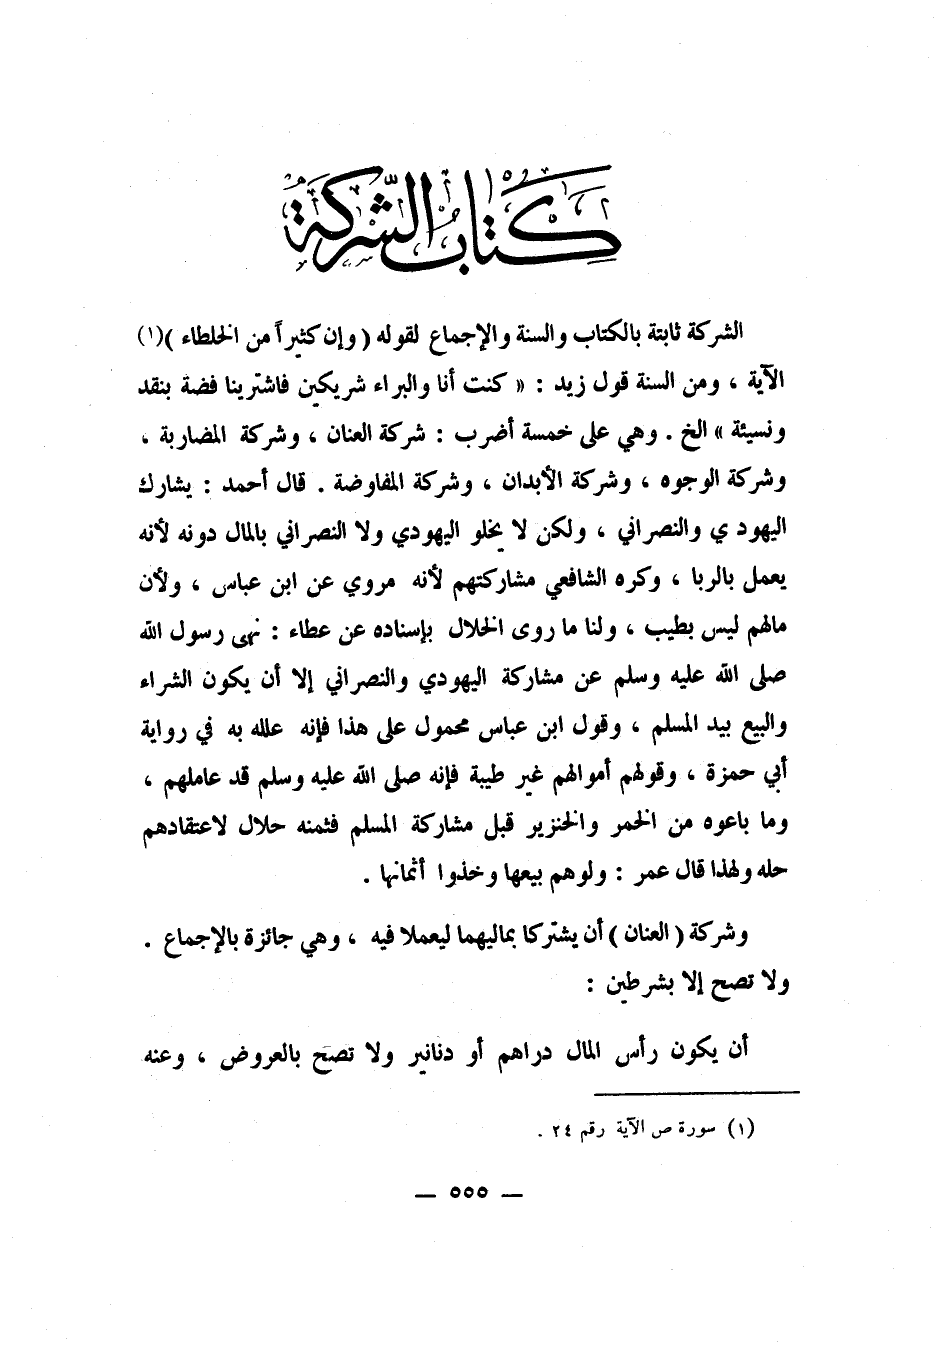 كتاب الشركة
الشركة ثابتة بالكتاب والسنة والإجماع لقوله ( وإن كثيراً من الخلطاء )(١)
الآية ، ومن السنة قول زيد : « كنت أنا والبراء شريكين فاشترينا فضة بنقد
ونسيئة » الخ . وهي على خمسة أضرب : شركة العنان ، وشركة المضاربة ،
وشركة الوجوه ، وشركة الأبدان ، وشركة المفاوضة . قال أحمد : يشارك
اليهودي والنصراني ، ولكن لا يخلو اليهودي ولا النصراني بالمال دونه لأنه
يعمل بالربا ، وكره الشافعي مشاركتهم لأنه مروي عن ابن عباس ، ولأن
مالهم ليس بطيب ، ولنا ما روى الخلال بإسناده عن عطاء : نهى رسول الله
صلى الله عليه وسلم عن مشاركة اليهودي والنصراني إلا أن يكون الشراء
والبيع بيد المسلم ، وقول ابن عباس محمول على هذا فإنه علله به في رواية
أبي حمزة ، وقولهم أموالهم غير طيبة فإنه صلى الله عليه وسلم قد عاملهم ،
وما باعوه من الخمر والخنزير قبل مشاركة المسلم فثمنه حلال لاعتقادهم
حله ولهذا قال عمر : ولوهم بيعها وخذوا أثمانها .
وشركة ( العنان ) أن يشتركا بماليهما ليعملا فيه ، وهي جائزة بالإجماع .
ولا تصح إلا بشرطين :
أن يكون رأس المال دراهم أو دنانير ولا تصح بالعروض ، وعنه
(١) سورة ص الآية رقم ٢٤ .
— ٥٥٥ —